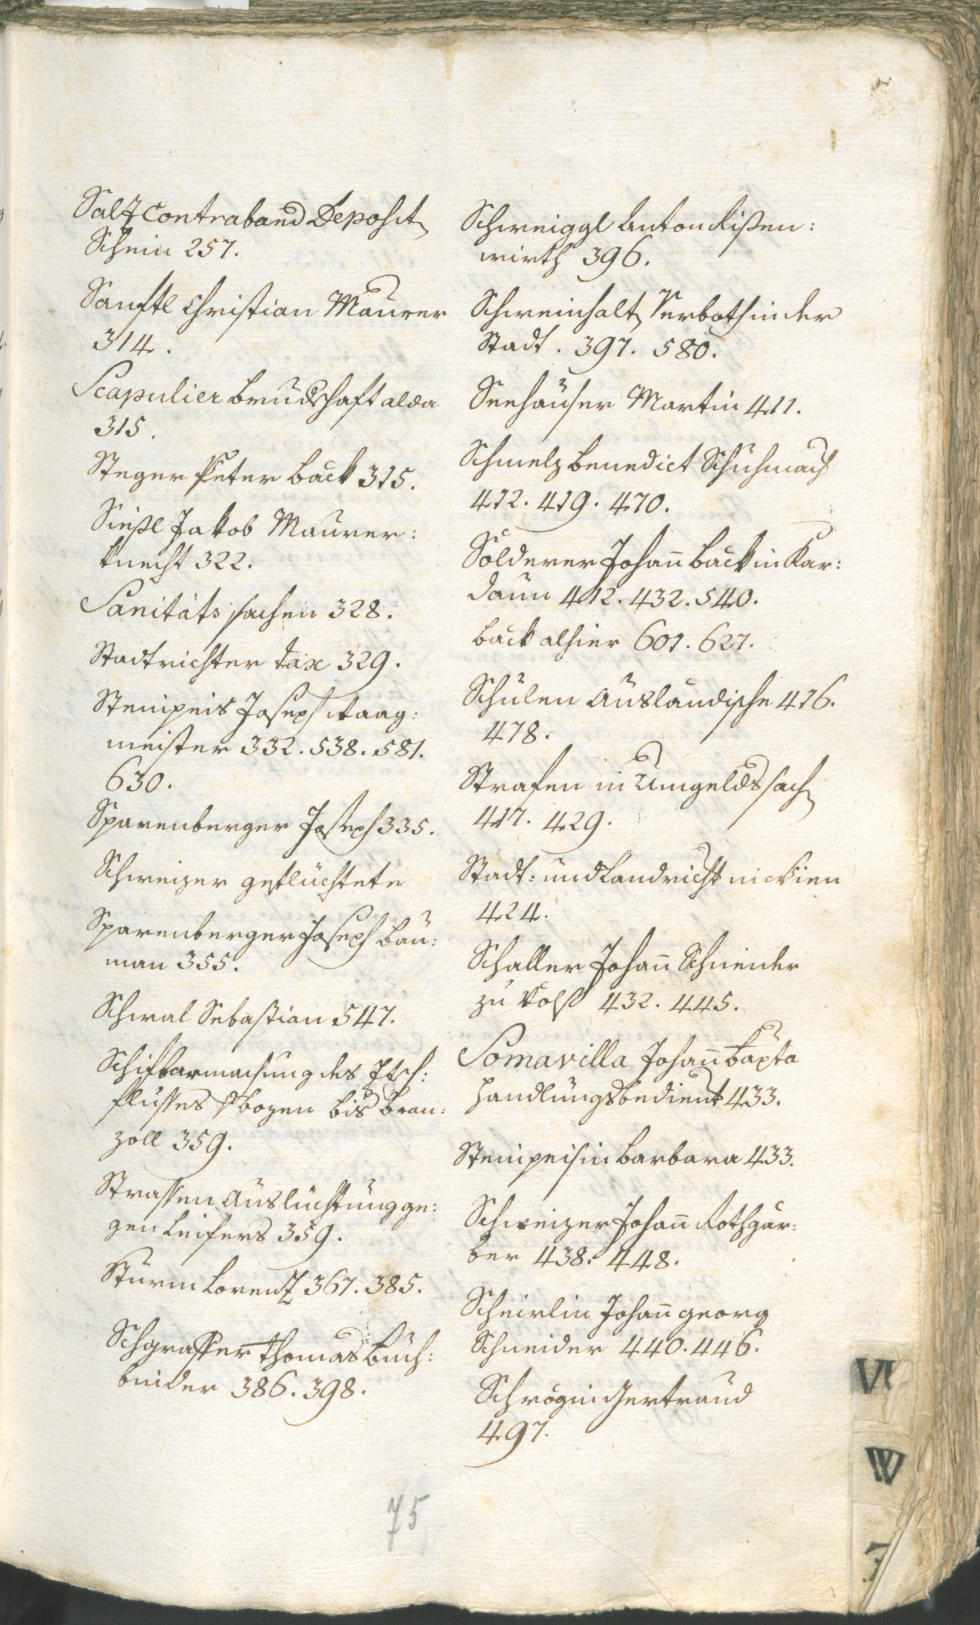 Saltz Contraband Deposit
Schein 257.
Sanftl Christian Maurer
314.
Scapulier Brudschaft alda
315.
Steger Peter Bäck 315.
Sießl Jakob Maurer:
knecht 322.
Sanitäts sachen 328.
Stadtrichter tax 329.
Steinpeis Joseph Waag:
meister 332. 538. 581.
630.
Sparenberger Joseph 335.
Schweizer geflüchtete
Sparenberger Joseph Bau:
man 355.
Schwal Sebastian 547.
Schifbarmachung des Etsch:
flusses Bozen bis Bran:
zoll 359.
Strassen Auslichtung ge:
gen Leifers 359.
Sturm Lorentz 367. 385.
Schgraffer Thomas Buch:
binder 386. 398.
Schweiggl Anton Rißen:
wirth 396.
Schweinhalt Verboth in der
Stadt. 397. 580.
Seehauser Martin 411.
Schmelz Benedict Schuhmach
412. 419. 470.
Solderer Johann Bäck in Kar:
daun 412. 432. 540.
bäck alhier 601. 627.
Schulen Ausländische 416.
478.
Strafen in Umgelds sach
417. 429.
Stadt: und Landricht
424.
Schaller Johann Schneider
zu Vols 432. 445.
Somavilla Johann Bapta
Handlungsbedient 433.
Steinpeisin Barbara 433.
Schweizer Johann Rothgär:
ber 438. 448.
Scheirlin Johann Georg
Schneider 440. 446.
Schrögin Gertraud
497.
75
VI
W